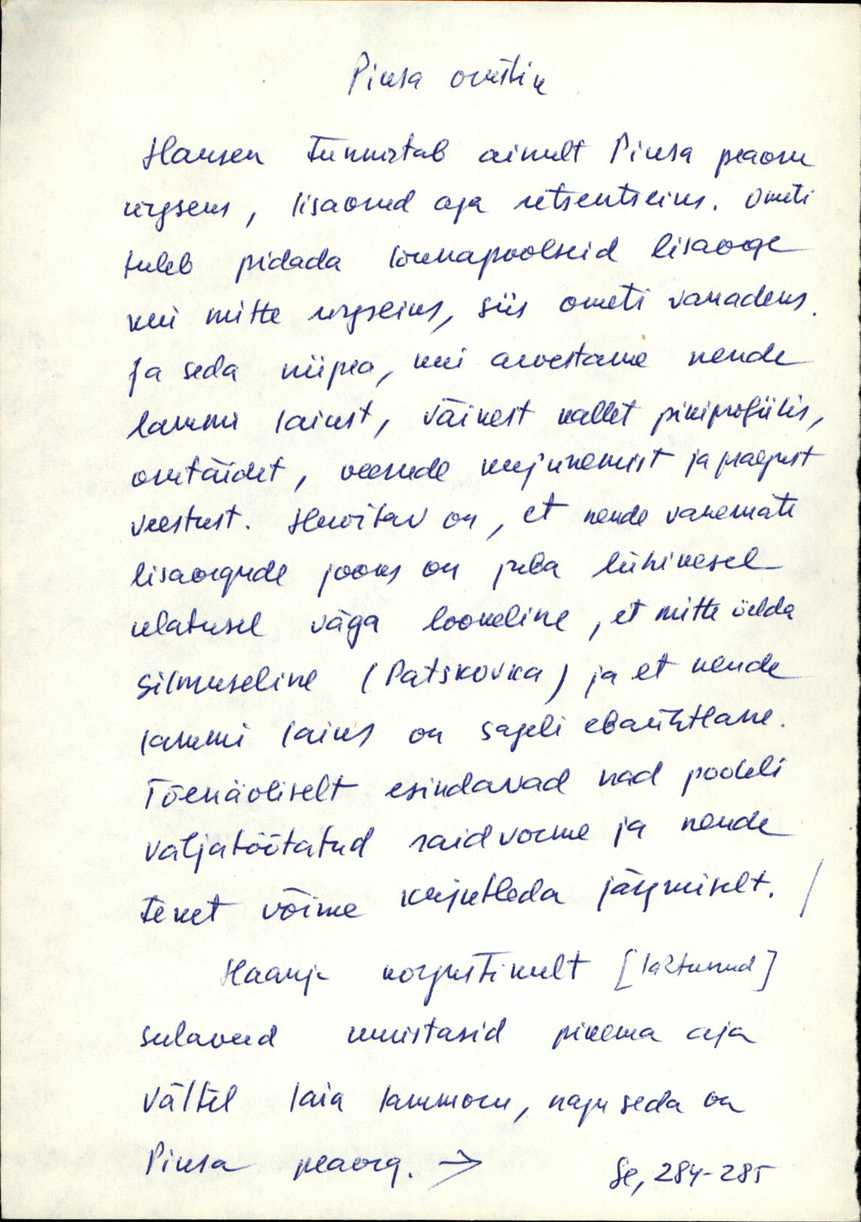 Piusa orustik
Hansen tunnustab ainult Piusa peaoru
ürgseks, lisaorud aga retsentseiks. Ometi
tuleb pidada lõunapoolseid lisaorge
kui mitte ürgseiks, siis ometi vanadeks.
Ja seda niipea, kui arvestame nende
lammi laiust, väikest kallet pikiprofiilis,
orutäidet, veerude kujunemist ja praegust
veestust. Huvitav on, et nende vanemate
lisaorgude jooks on juba lühikesel
ulatusel väga looneline, et mitte öelda
silmuseline (Patskovka) ja et nende
lammi laius on sageli ebaühtlane.
Tõenäoliselt esindavad nad pooleli
väljatöötatud raidvorme ja nende
teket võime kujutleda järgmiselt. /
Haanja kõrgustikult [lähtunud]
sulaveed uuristasid pikema aja
vältel laia lammoru, nagu seda on
Piusa peaorg. →
Se, 284-285